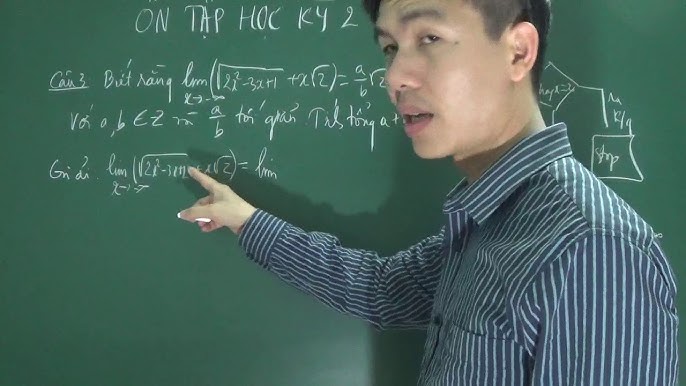 ÔN TẬP HỌC KỲ 2
Câu 3: Biết rằng lim x→-∞ (√(2x²-3x+1) + x√2) = a/b √
Với a, b ∈ Z và a/b tối giản. Tính tổng a+
Giải: lim x→-∞ (√(2x²-3x+1) + x√2) = lim
ra
K/q
stop